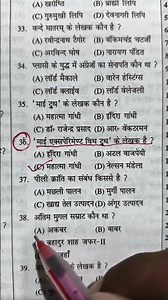 (A) खरोष्ठि (B) ब्राह्मी लिपि
(C) गुरुमुखी लिपि (D) देवनागरी लिपि
33. वन्दे मातरम् के लेखक कौन है ?
(A) रवीन्द्रनाथ टैगोर (B) बंकिमचंद्र चटर्जी
(C) अरविन्द घोष (D) नारायण पंडित
34. प्लासी के युद्ध में अंग्रेजों का सेनापति कौन था ?
(A) लॉर्ड मैकाले (B) वारेन हेस्टिंग्स
(C) लॉर्ड क्लाईव (D) लॉर्ड वेलेजली
35. 'माई ट्रुथ' के लेखक कौन है ?
(A) महात्मा गांधी (B) इंदिरा गांधी
(C) डॉ० राजेन्द्र प्रसाद (D) आर० वेंकटरमन
36. 'माई एक्सपेरिमेन्ट विथ ट्रुथ' के लेखक है ?
(A) इंदिरा गांधी (B) अटल वाजपेयी
(C) महात्मा गांधी (D) नेल्सन मंडेला
37. पीली क्रांति का संबंध किससे है ?
(A) मछली पालन (B) मुर्गी पालन
(C) खाद्य तेल उत्पादन (D) अंगूर उत्पादन
38. अंतिम मुगल सम्राट कौन था ?
(A) अकबर (B) बाबर
बहादुर शाह जफर-II
के लेखक कौन है ?